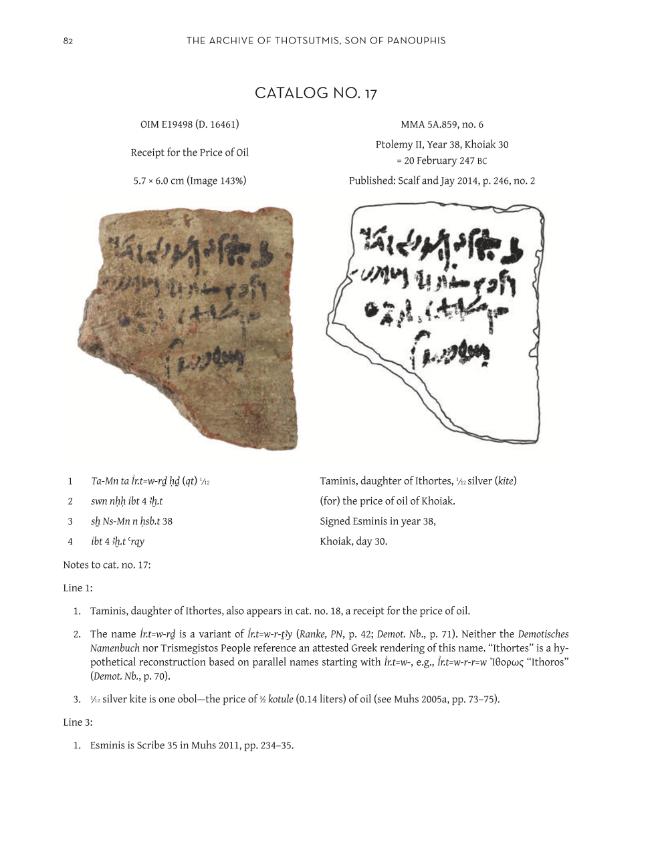 82
THE ARCHIVE OF THOTSUTMIS, SON OF PANOUPHIS
CATALOG NO. 17
OIM E19498 (D. 16461)
MMA 5A.859, no. 6
Receipt for the Price of Oil
Ptolemy II, Year 38, Khoiak 30
= 20 February 247 BC
5.7 × 6.0 cm (Image 143%)
Published: Scalf and Jay 2014, p. 246, no. 2
1 Ta-Mn ta ỉr.t=w-rḏ ḥḏ (qt) 1/12
Taminis, daughter of Ithortes, 1/12 silver (kite)
2 swn nḥḥ ỉbt 4 ꜣḫ.t
(for) the price of oil of Khoiak.
3 sẖ Ns-Mn n ḥsb.t 38
Signed Esminis in year 38,
4 ỉbt 4 ꜣḫ.t ꜥrqy
Khoiak, day 30.
Notes to cat. no. 17:
Line 1:
1. Taminis, daughter of Ithortes, also appears in cat. no. 18, a receipt for the price of oil.
2. The name ỉr.t=w-rḏ is a variant of ỉr.t=w-r-ṯꜣy (Ranke, PN, p. 42; Demot. Nb., p. 71). Neither the Demotisches
Namenbuch nor Trismegistos People reference an attested Greek rendering of this name. "Ithortes" is a hy-
pothetical reconstruction based on parallel names starting with ỉr.t=w-, e.g., ỉr.t=w-r-r=w Ἰθορως "Ithoros"
(Demot. Nb., p. 70).
3. 1/12 silver kite is one obol—the price of ½ kotule (0.14 liters) of oil (see Muhs 2005a, pp. 73–75).
Line 3:
1. Esminis is Scribe 35 in Muhs 2011, pp. 234–35.